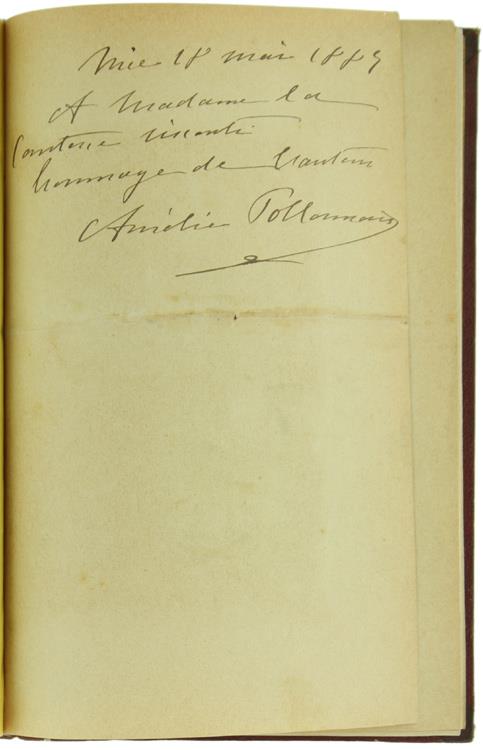 Nice 18 mai 1889
A Madame la
Comtesse Visconti
hommage de l'auteur
Amélie Pollonnais